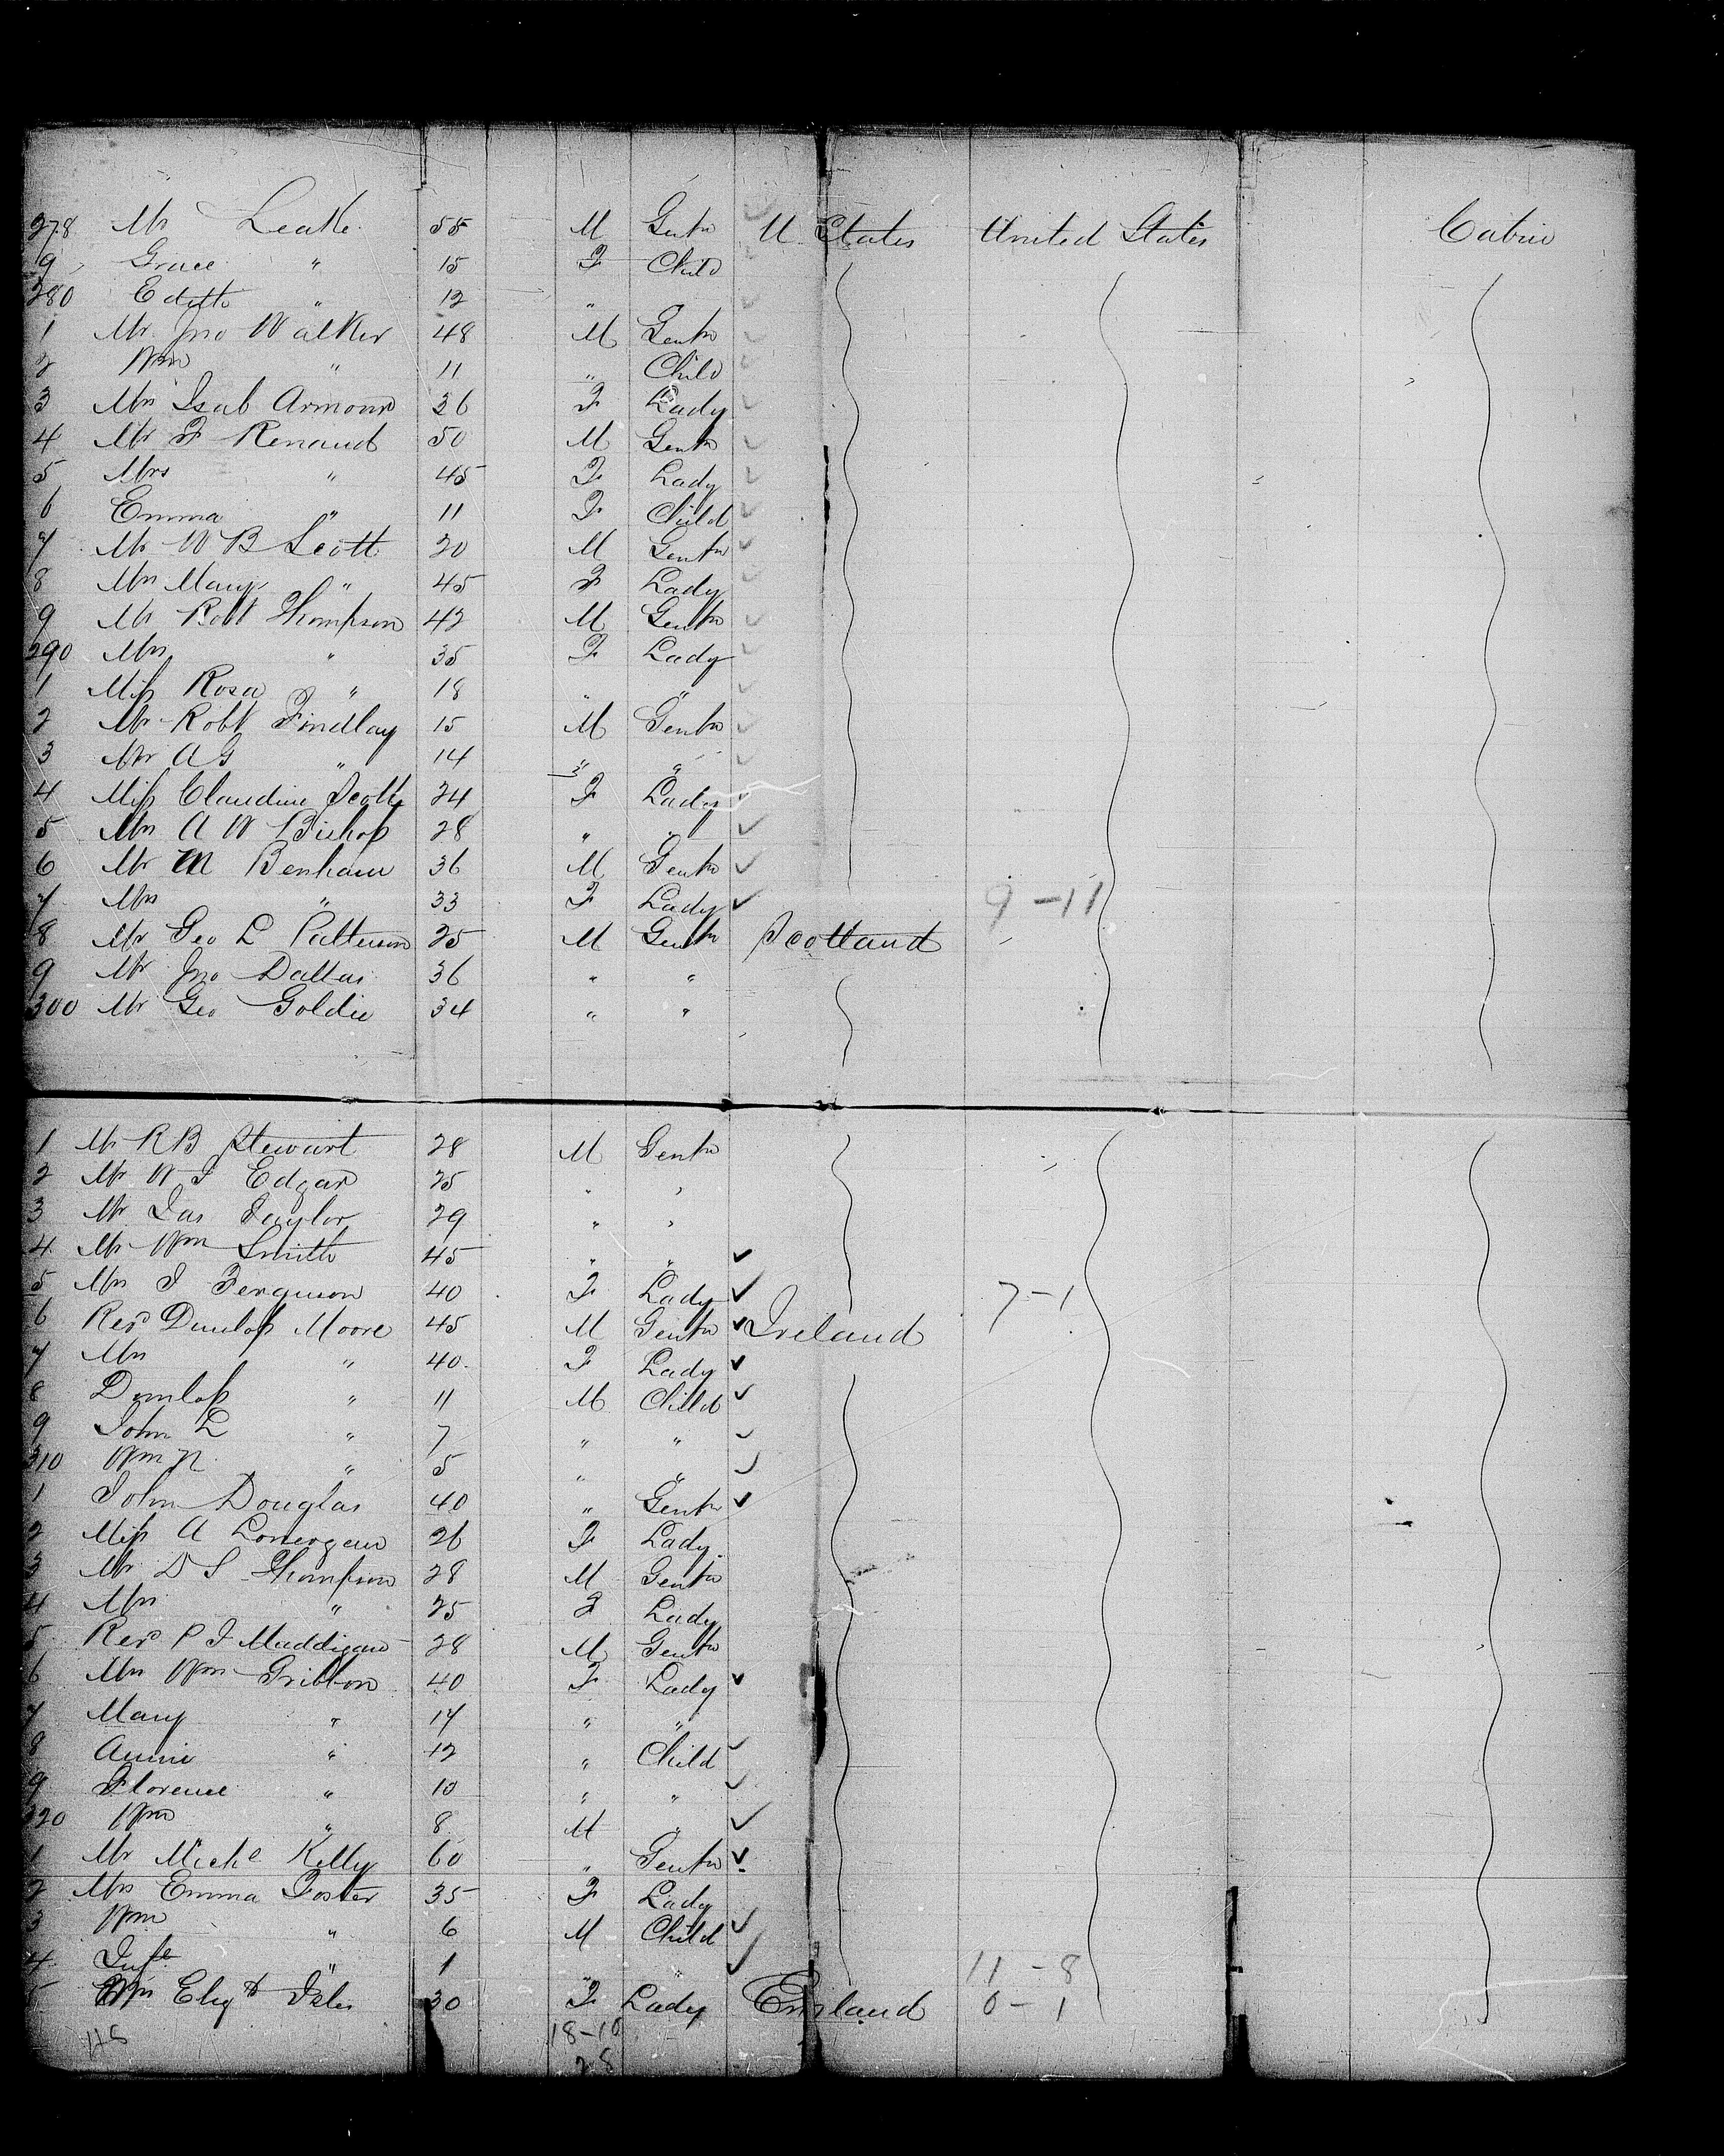 278 Mr Leake 55 M Gentn U States United States Cabin
9 Grace " 15 F Child
280 Edith " 12 "
1 Mr Jno Walker 48 M Gentn
2 Wm " 11 " Child
3 Mrs Isab Armour 36 F Lady
4 Mr F Renaud 50 M Gentn
5 Mrs " 45 F Lady
6 Emma " 11 F Child
7 Mr W B Scott 20 M Gentn
8 Mrs Mary " 45 F Lady
9 Mr Robt Thompson 42 M Gentn
290 Mrs " 35 F Lady
1 Miss Rosa " 18 " "
2 Mr Robt Findlay 15 M Gentn
3 Mr A G " 14 " "
4 Miss Claudine Scott 24 F Lady
5 Mrs A W Bishop 28 " "
6 Mr M Benham 36 M Gentn
7 Mrs " 33 F Lady 9-11
8 Mr Geo L Patterson 25 M Gentn Scotland
9 Mr Jno Dallas 36 " "
300 Mr Geo Goldie 34 " "
1 Mr R B Stewart 28 M Gentn
2 Mr W J Edgar 25 " "
3 Mr Jas Taylor 29 " "
4 Mr Wm Smith 45 " "
5 Mrs J Ferguson 40 F Lady 7-1
6 Revd Dunlop Moore 45 M Gentn Ireland
7 Mrs " 40 F Lady
8 Dunlop " 11 M Child
9 John L " 7 " "
310 Wm N " 5 " "
1 John Douglas 40 " Gentn
2 Miss A Lonergan 26 F Lady
3 Mr D S Thompson 28 M Gentn
4 Mrs " 25 F Lady
5 Revd P J Maddigan 28 M Gentn
6 Mrs Wm Gribbon 40 F Lady
7 Mary " 14 " "
8 Annie " 12 " Child
9 Florence " 10 " "
320 Wm " 8 M "
1 Mr Michl Kelly 60 " Gentn
2 Mrs Emma Foster 35 F Lady
3 Wm " 6 M Child
4 Inft " 1 " " 11-8
5 Mrs Elizth 30 F Lady England 0-1
18-10
28